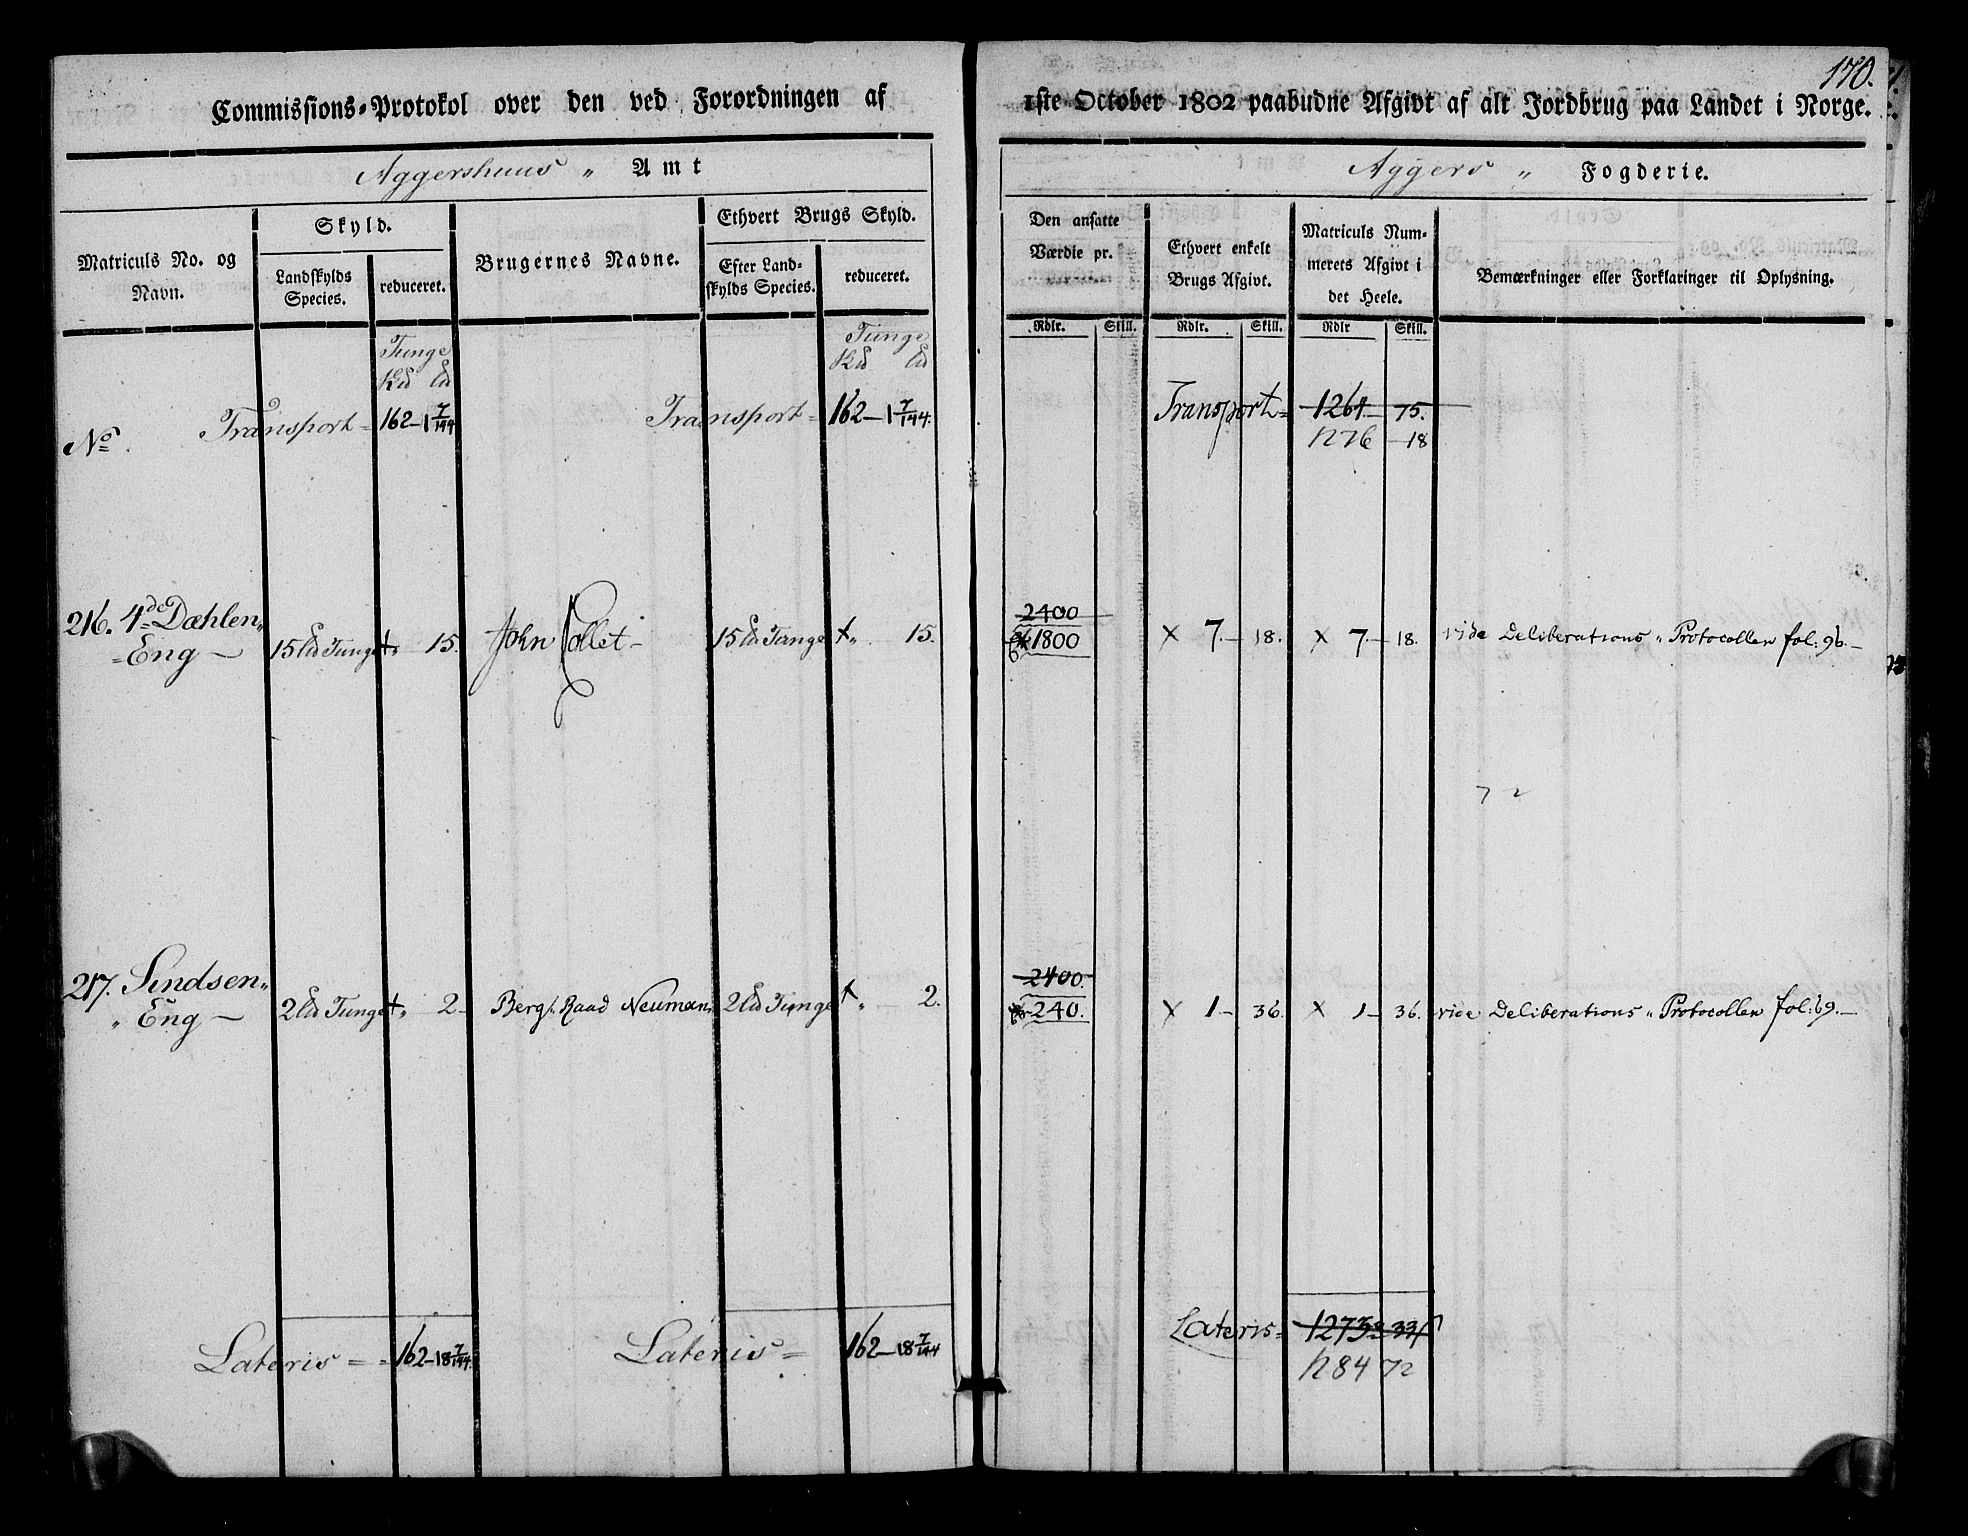 170.
Commissions-Protokol over den ved Forordningen af 1ste October 1802 paabudne Afgivt af alt Jordbrug paa Landet i Norge.
Aggershuus " Amt
Aggers " Fogderie.
Matriculs No. og Navn.
Skyld.
Landskylds Species.
reduceret.
Brugernes Navne.
Ethvert Brugs Skyld.
Efter Landskylds Species.
reduceret.
Den ansatte Værdie pr.
Ethvert enkelt Brugs Afgivt.
Matriculs Nummerets Afgivt i det Heele.
Bemærkninger eller Forklaringer til Oplysning.
Rdlr. Skill. Rdlr. Skill. Rdlr Skill.
Tunge Tunge
No. Transport = 162 - 1 7/144 Transport = 162 - 1 7/144. Transport = 1264 - 75.
1276 - 18
2400
216. 4de Dæhlen„
= Eng — 15 Ld Tunge + „ 15. John Collet - 15 Ld Tunge + „ 15. 1800 × 7. - 18. × 7. - 18. vide Deliberations „ Protocollen fol: 96. —
72
2400.
217. Sindsen„
„ Eng — 2 Ld Tunge + „ 2 - Berg: Raad Neuman 2 Ld Tunge + „ 2. 240. × 1 - 36. × 1 - 36. vide Deliberations „ Protocollen fol: 69. —
Lateris = = 162 - 18 7/144. Lateris = 162 - 18 7/144 Lateris = 1273 33
1284 72